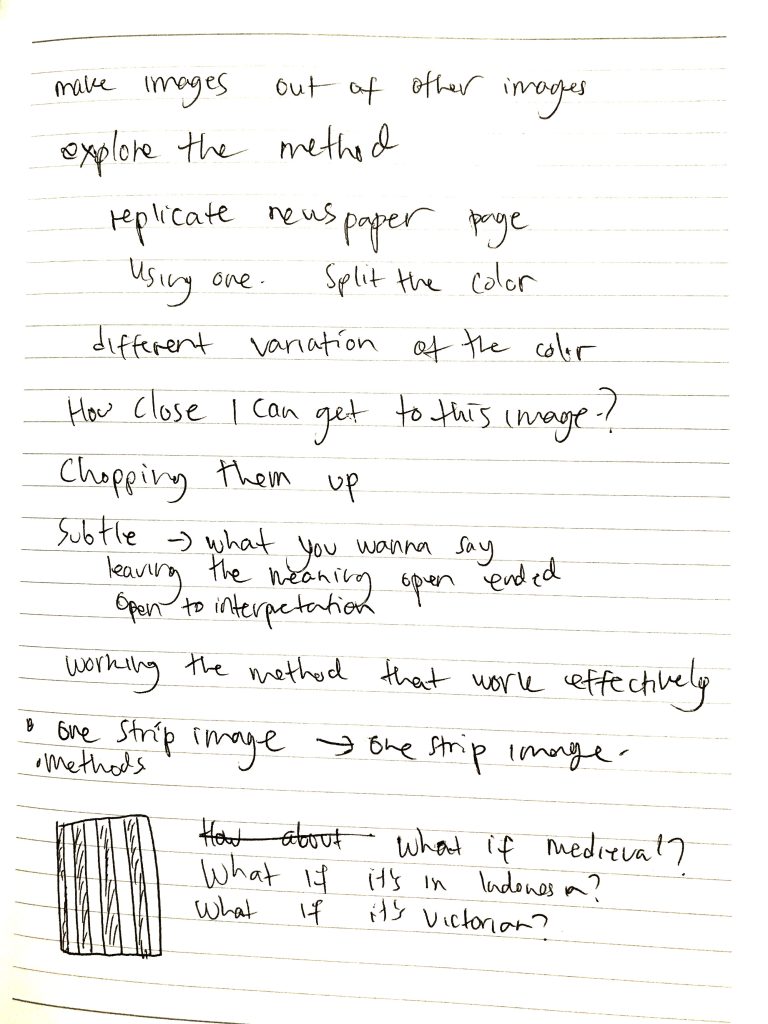 make images out of other images
explore the method
replicate newspaper page
Using one. Split the color
different variation of the color
How close I can get to this image?
Chopping them up
Subtle → what you wanna say
leaving the meaning open ended
open to interpretation
working the method that work effectively
• one strip image → one strip image.
• methods
How about What if medieval?
What if it's in Indonesia?
What if it's Victorian?